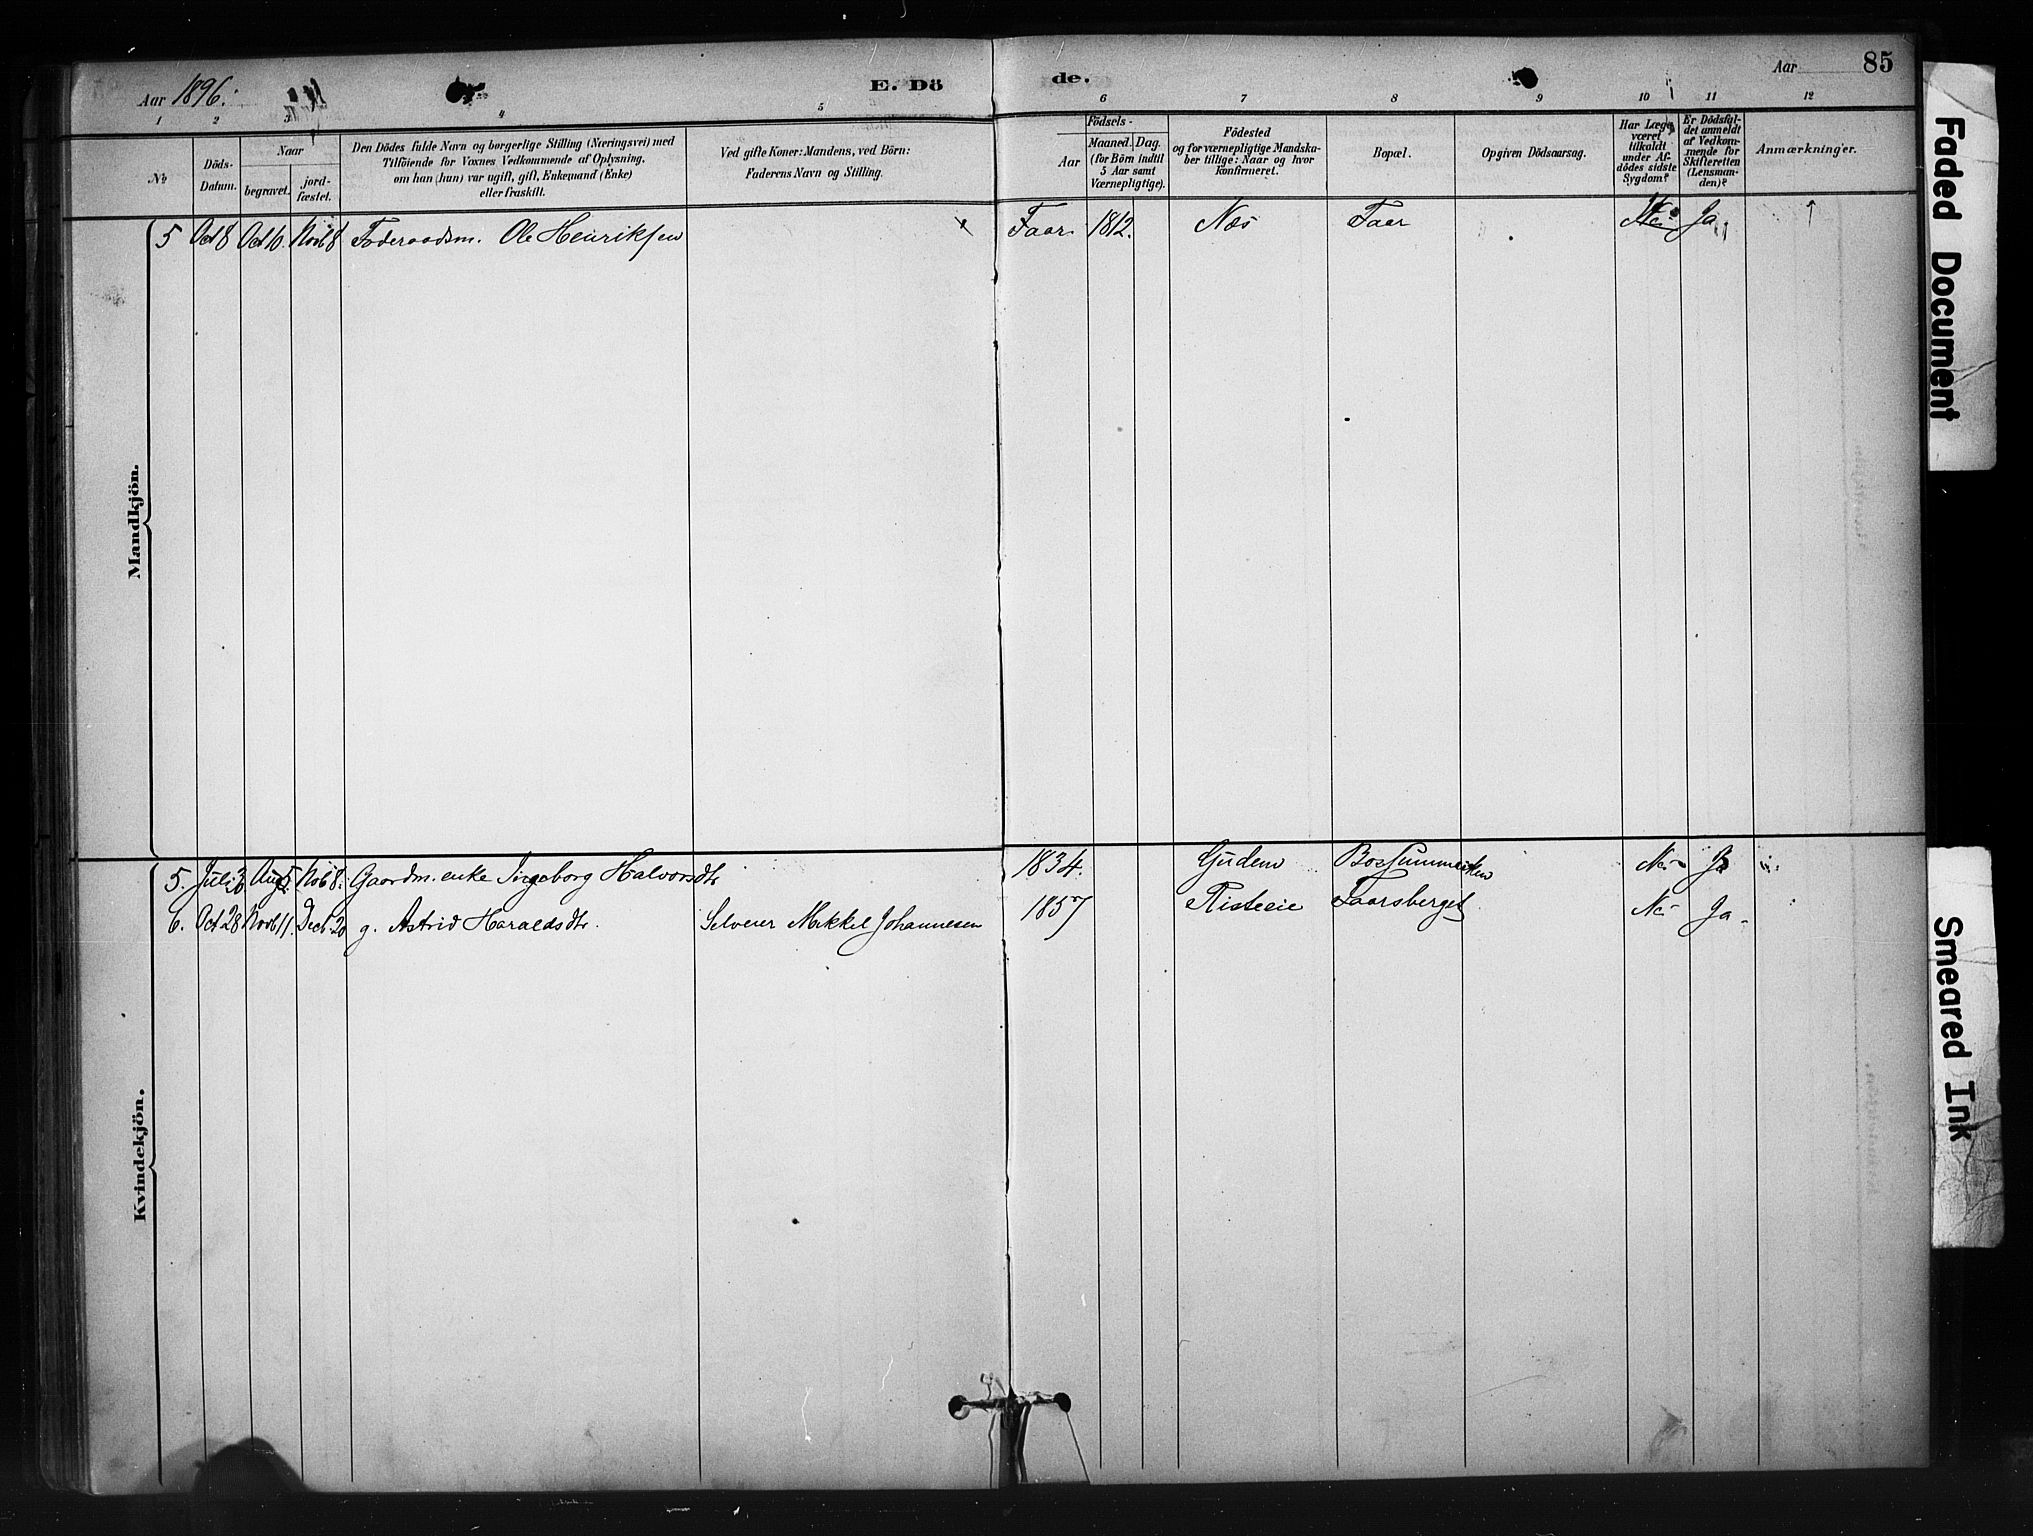 Aar 1896. E. Dö de. Aar 85
1 2 3 4 5 6 7 8 9 10 11 12
№
Döds-
Datum.
Naar
begravet.
jord-
fæstet.
Den Dödes fulde Navn og borgerlige Stilling (Næringsvei) med
Tilföiende for Voxnes Vedkommende af Oplysning,
om han (hun) var ugift, gift, Enkemand (Enke)
eller fraskilt.
Ved gifte Koner: Mandens, ved Börn:
Faderens Navn og Stilling.
Födsels-
Aar
Maaned. Dag.
(for Börn indtil
5 Aar samt
Værnepligtige).
Födested
og for værnepligtige Mandska-
ber tillige: Naar og hvor
konfirmeret.
Bopæl.
Opgiven Dödsaarsag.
Har Læge
været
tilkaldt
under Af-
dödes sidste
Sygdom?
Er Dödsfal-
det anmeldt
af Vedkom-
mende for
Skifteretten
(Lensman-
den)?
Anmærkninger.
Mandkjön.
5 Oct 8 Oct 16. Novb 8 Foderaadsm. Ole Henriksen Faar 1812. Næs Faar Nei Ja
Kvindekjön.
5. Juli Aug Novb 8. Gaardm. enke Ingeborg Halvorsdtr 1834. Nei Ja
6. Oct 28 Novb 11. Decb 20 g. Astrid Haraldsdtr. Selveier Mikkel Johannesen 1857 Faarsberget Nei Ja
Faded Document
Smeared Ink